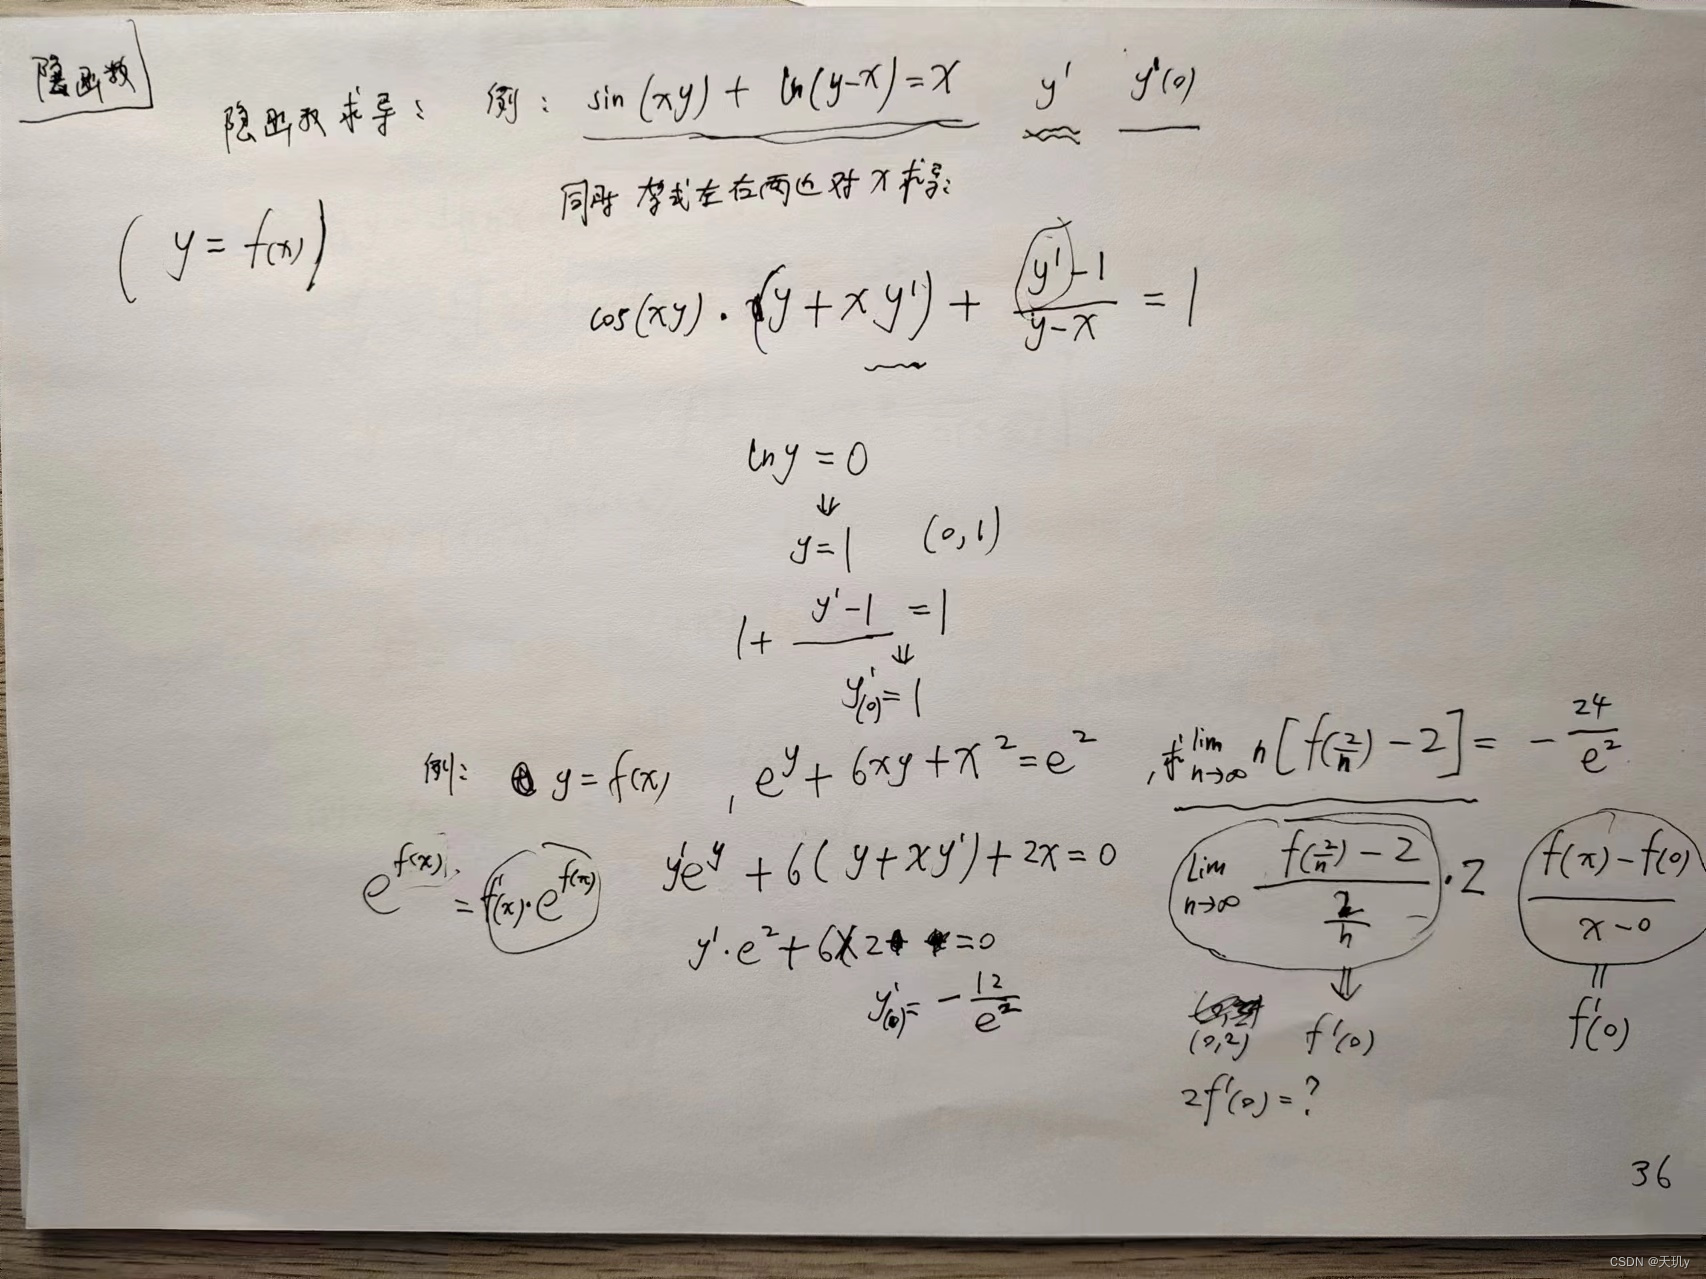 隐函数
隐函数求导: 例: sin(xy) + ln(y-x) = x y' y'(0)
同时 等式左右两边对x求导:
(y = f(x))
cos(xy)·(y + xy') + \frac{y'-1}{y-x} = 1
ln y = 0
⇓
y = 1 (0,1)
1 + \frac{y'-1}{} = 1
⇓
y'(0) = 1
例: y = f(x), e^y + 6xy + x^2 = e^2, 求 \lim_{n→∞} n[f(\frac{2}{n}) - 2] = -\frac{24}{e^2}
e^{f(x)} = f'(x)·e^{f(x)}
y'e^y + 6(y + xy') + 2x = 0
y'·e^2 + 6×2 = 0
y'(0) = -\frac{12}{e^2}
\lim_{n→∞} \frac{f(\frac{2}{n}) - 2}{\frac{2}{n}}·2
⇓
(0,2) f'(0)
2f'(0) = ?
\frac{f(x) - f(0)}{x - 0}
=
f'(0)
36
CSDN @天玑y